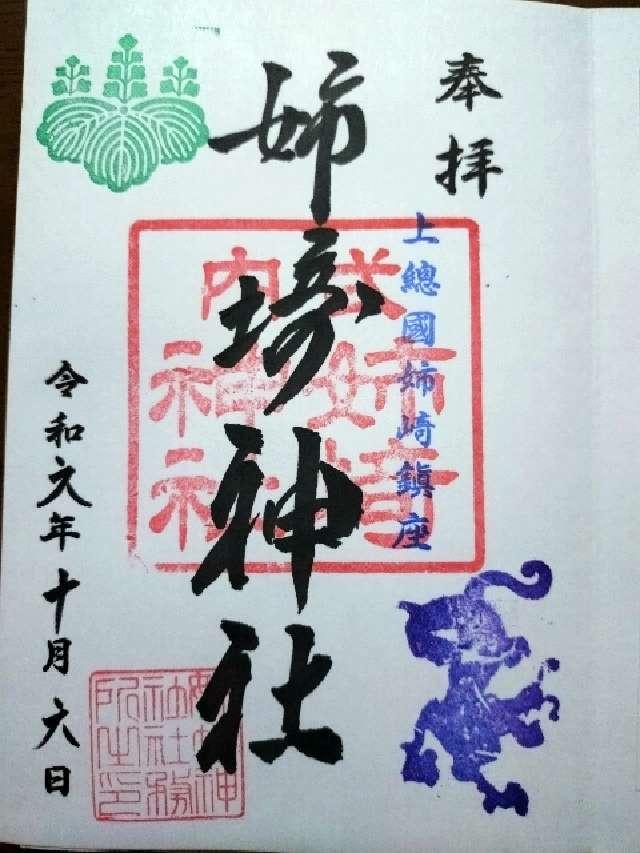 奉拝
上總國姉崎鎮座
姉埼神社
式姉埼
内神社
令和元年十月六日
姉埼神
社社務
所之印